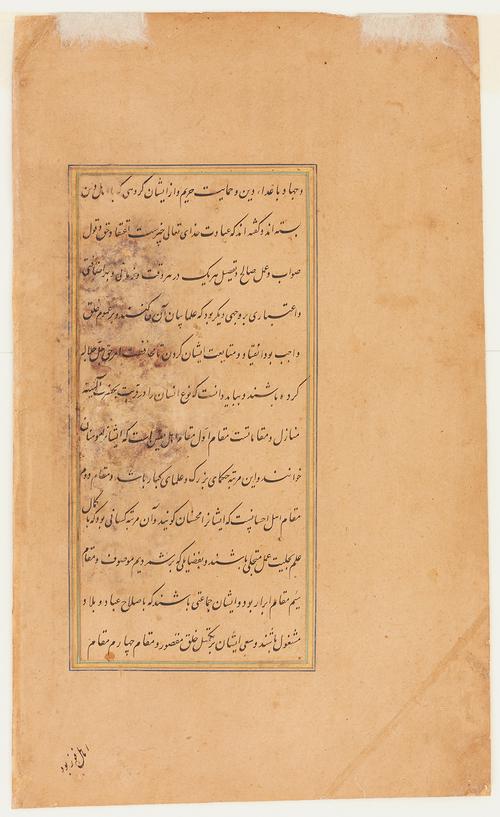 و جهاد با اعداء دین و حمایت حریم و از ایشان گروهی که با اهل دین
بسته‌اند و گفته‌اند که عبادت خدای تعالی سه چیزست اعتقاد حق و قول
صواب و عمل صالح و تفصیل هر یک در هر وقت و زمانی و بهر اضافتی
و اعتباری بر وجهی دیگر بود که علما بیان آن میکنند و بر عموم خلق
واجب بود انقیاد و متابعت ایشان کردن تا محافظت امر حق جل جلاله
کرده باشند و بباید دانست که نوع انسان را در قربت بحضرت الهیت
منازل و مقاماتست مقام اول مقام اهل یقین است که ایشانرا موقنان
خوانند و این مرتبه حکمای بزرگ و علمای کبار باشد و مقام دوم
مقام اهل احسانست که ایشانرا محسنان گویند و آن مرتبه کسانی بود که با کمال
علم بحلیت عمل متحلی باشند و بفضایلی که برشمردیم موصوف و مقام
سیم مقام ابرار بود و ایشان جماعتی باشند که باصلاح عباد و بلاد
مشغول باشند و سعی ایشان بر تکمیل خلق مقصور و مقام چهارم مقام
اهل فوز بود